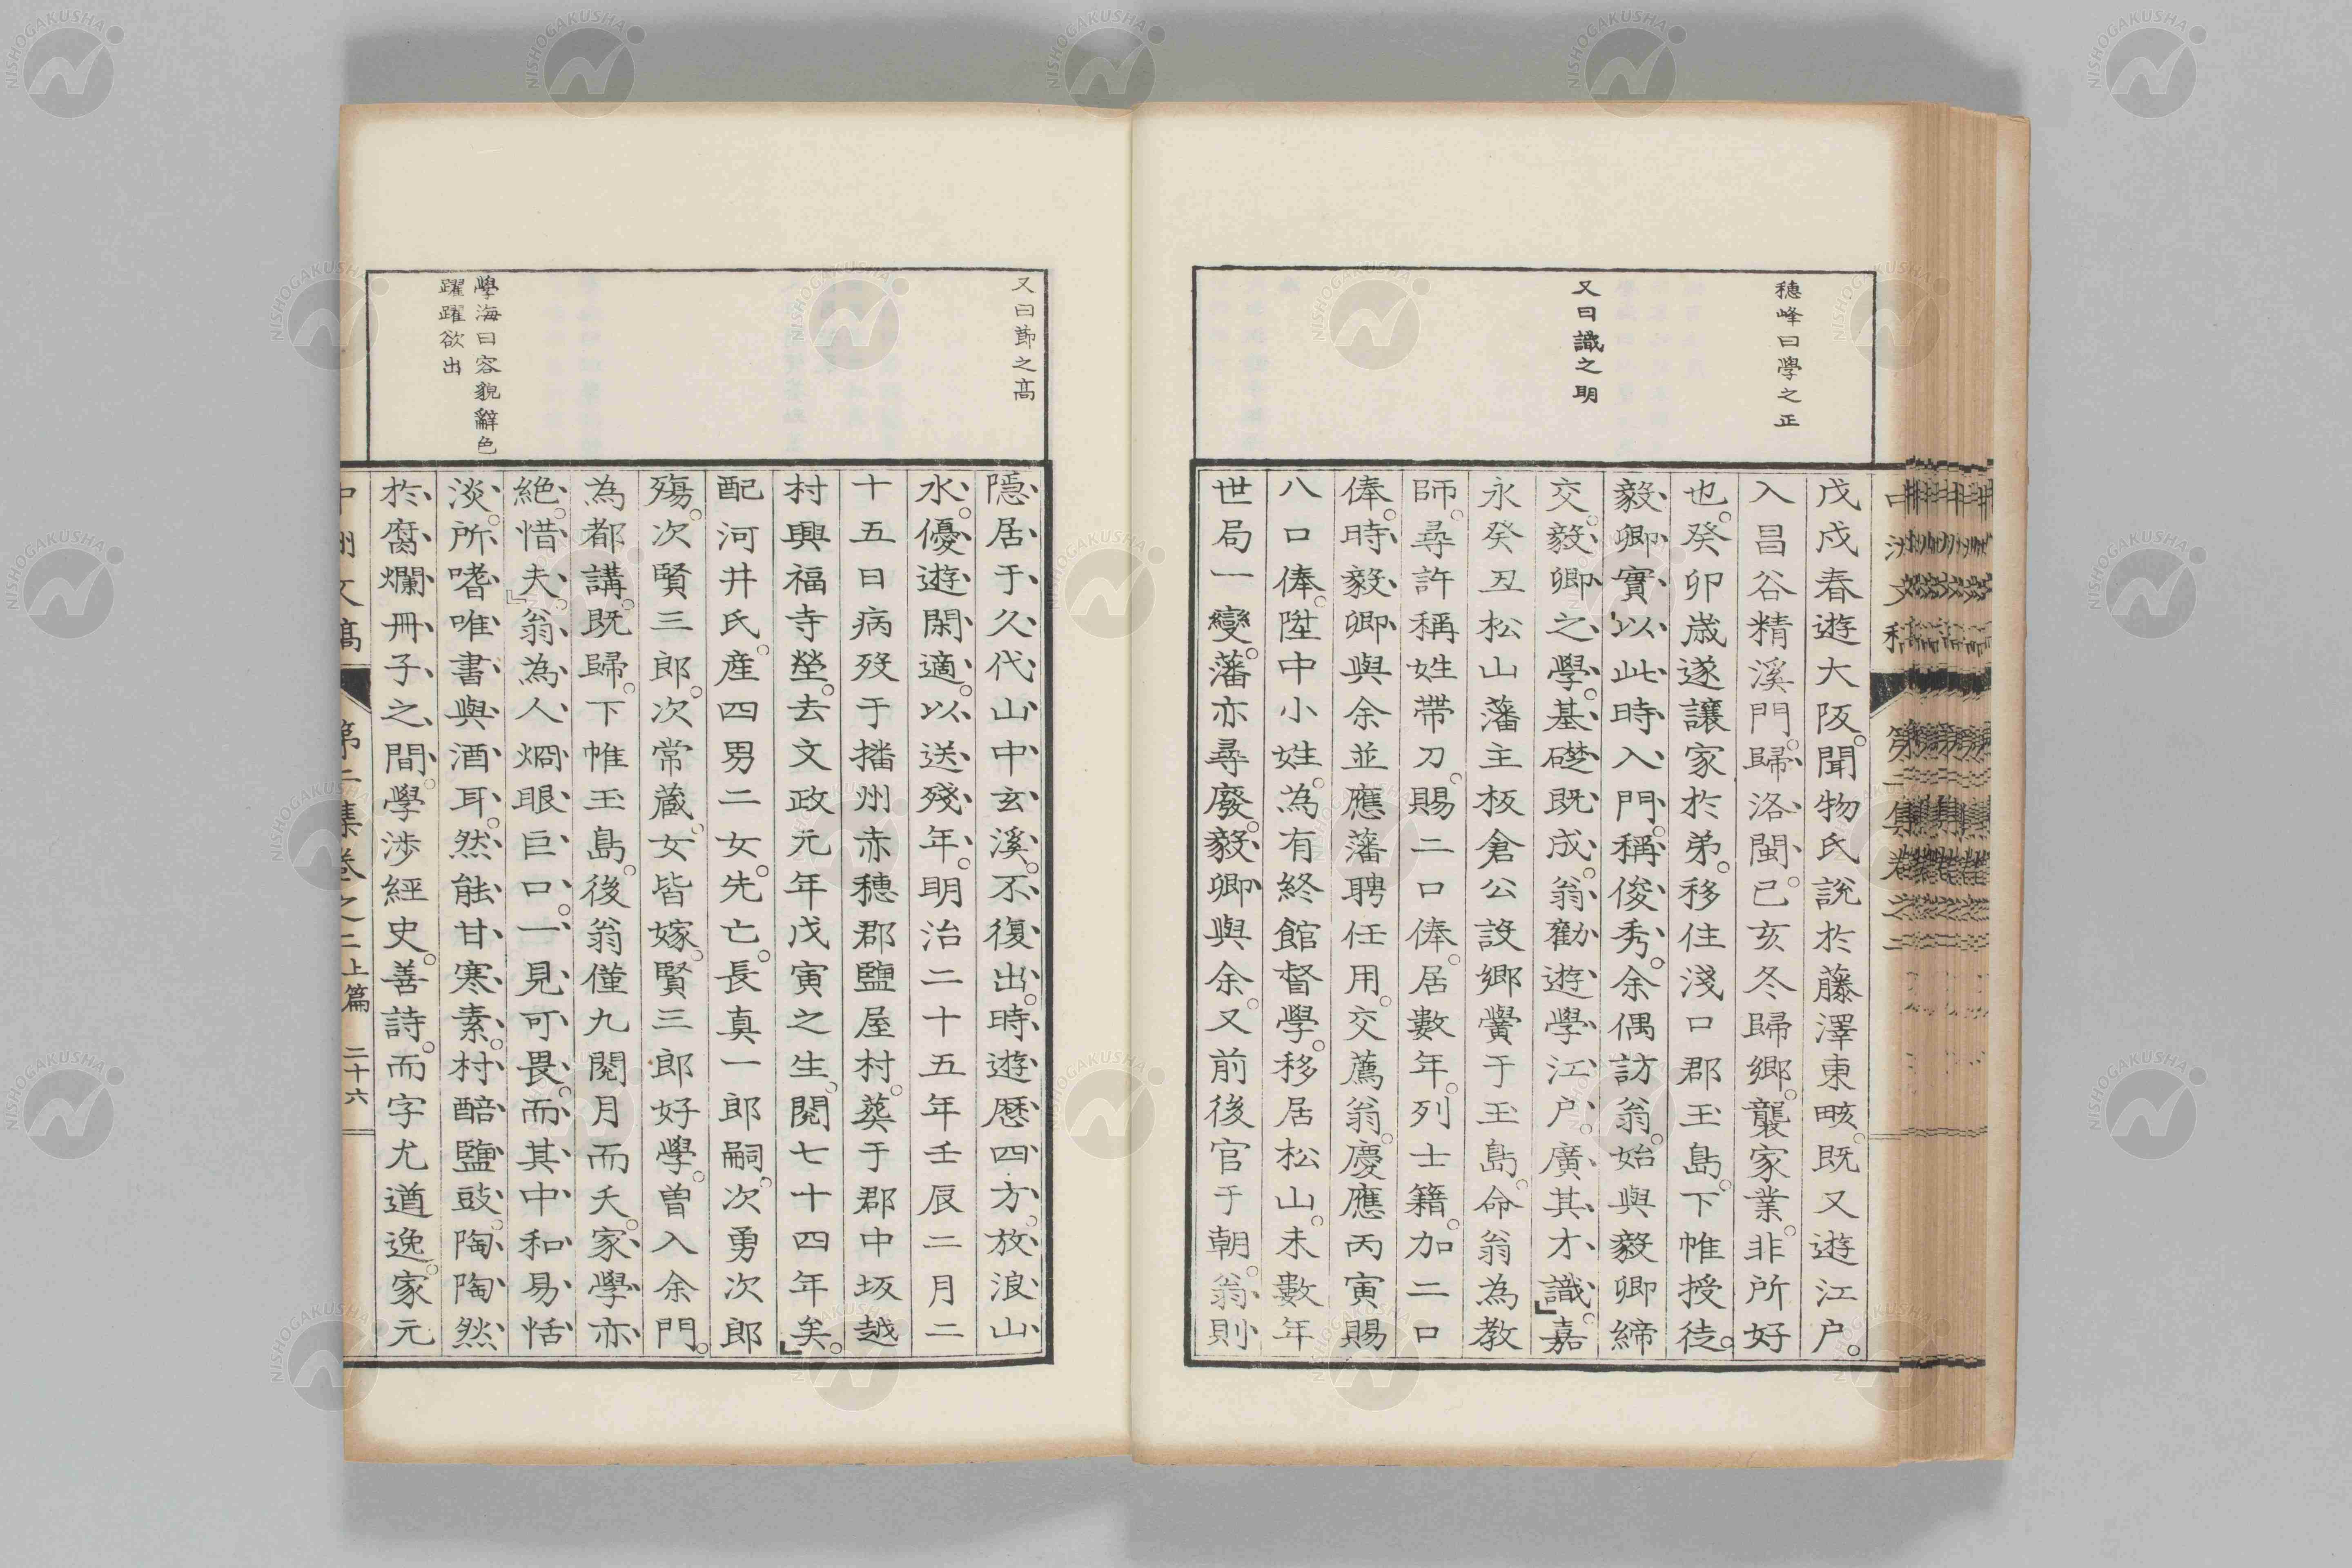 穗峰曰學之正
又曰識之明
戊戍春遊大阪。聞物氏說於藤澤東畡。既又遊江户。
入昌谷精溪門。歸洛閩。己亥冬歸鄉。襲家業。非所好
也。癸卯歲遂讓家於弟。移住淺口郡玉島。下帷授徒。
毅卿實以此時入門。稱俊秀。余偶訪翁。始與毅卿締
交。毅卿之學。基礎既成。翁勸遊學江户。廣其才識。」嘉
永癸丑松山藩主板倉公設鄉黌于玉島。命翁為教
師。尋許稱姓帶刀。賜二口俸。居數年。列士籍。加二口
俸。時毅卿與余並應藩聘任用。交薦翁。慶應丙寅賜
八口俸。陞中小姓。為有終館督學。移居松山。未數年
世局一變。藩亦尋廢。毅卿與余。又前後官于朝。翁則
又曰節之高
學海曰容貌辭色
躍躍欲出
隱居于久代山中玄溪。不復出。時遊歷四方。放浪山
水。優遊閑適。以送殘年。明治二十五年壬辰二月二
十五日病歿于播州赤穗郡鹽屋村。葬于郡中坂越
村興福寺塋。去文政元年戊寅之生。閱七十四年矣。」
配河井氏。産四男二女。先亡。長真一郎嗣。次勇次郎
殤。次賢三郎。次常藏。女皆嫁。賢三郎好學。曾入余門。
為都講。既歸。下帷玉島。後翁僅九閱月而夭。家學亦
絕。惜夫。」翁為人烱眼巨口。一見可畏。而其中和易恬
淡。所嗜唯書與酒耳。然能甘寒素。村醅鹽豉。陶陶然
於腐爛冊子之間。學涉經史。善詩。而字尤遒逸。家元
中洲文稿 第二集卷之二上篇 二十六